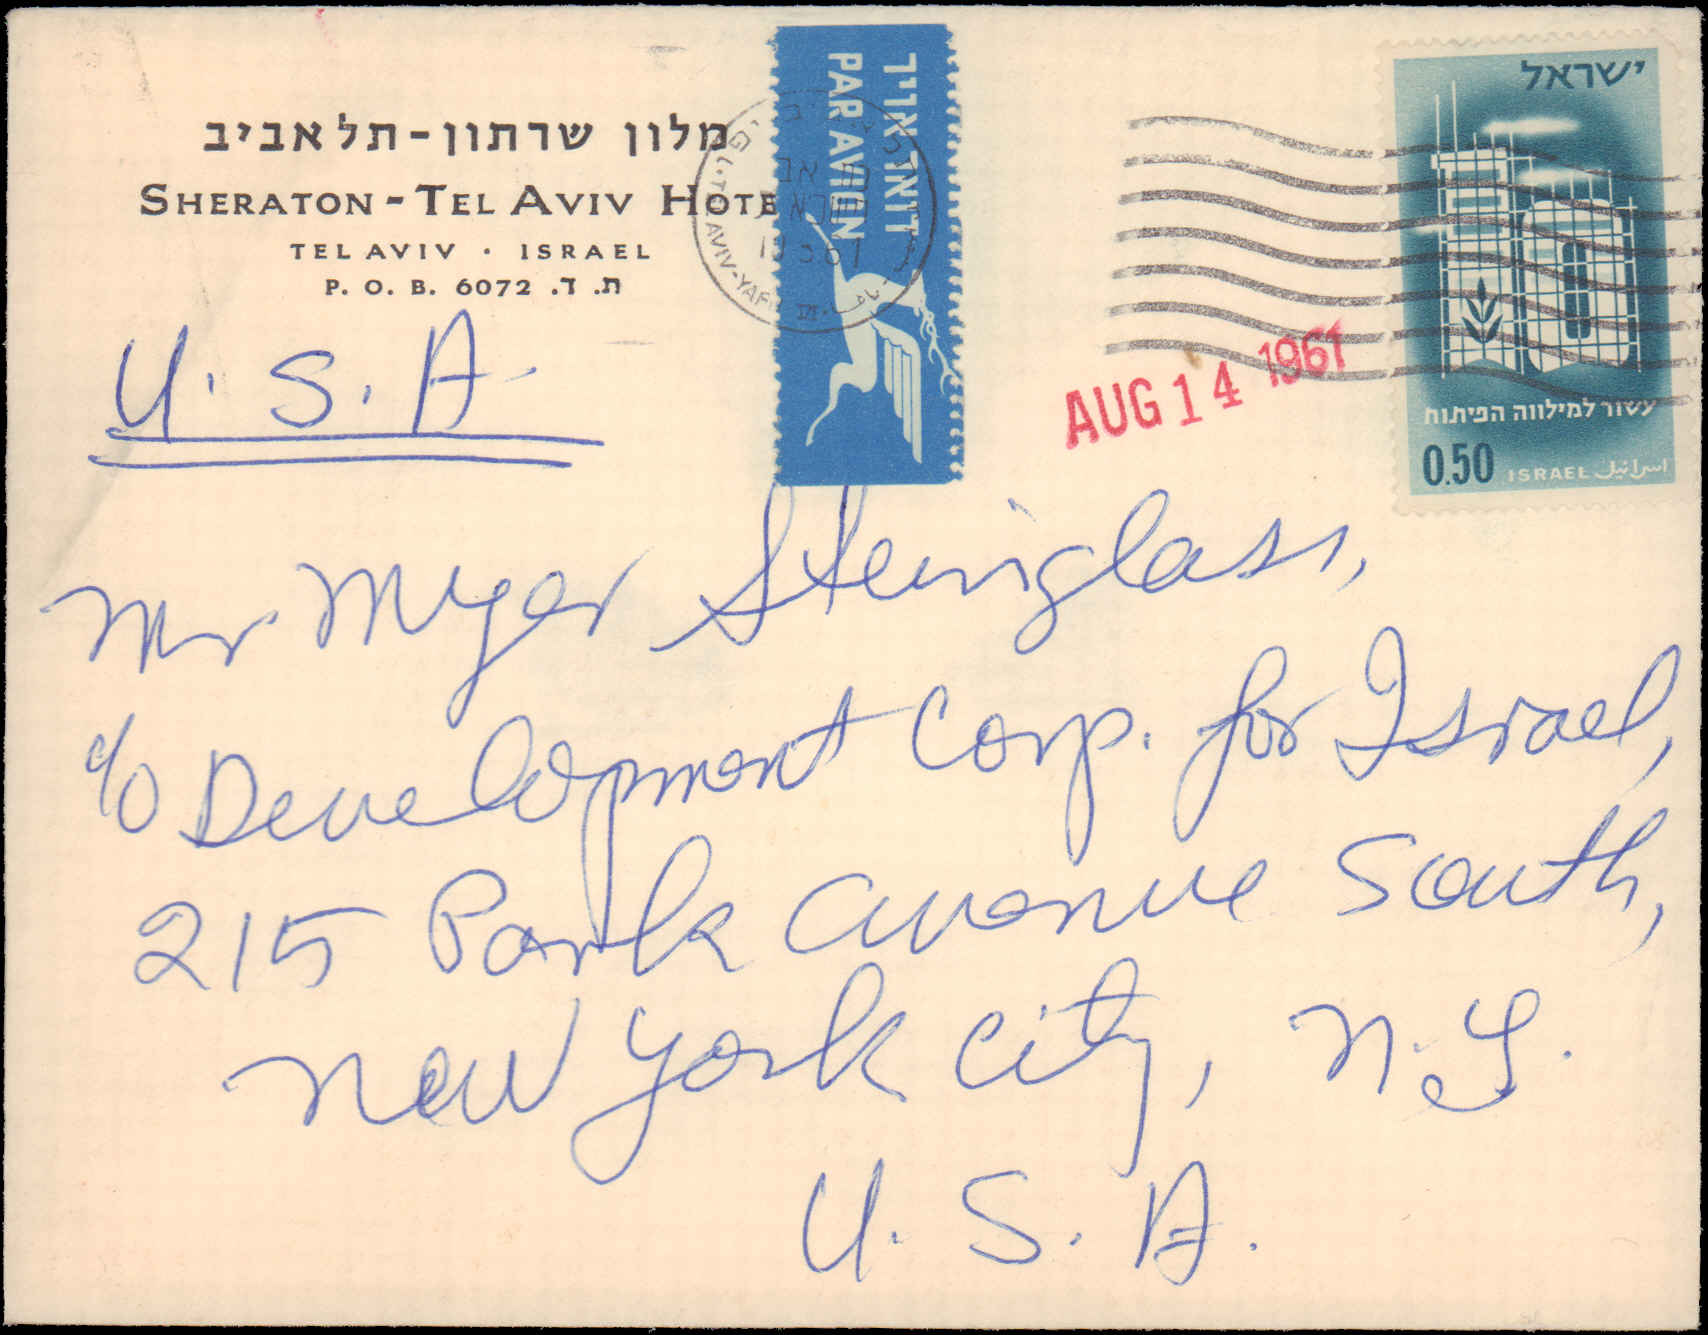 מלון שרתון-תל אביב
SHERATON-TEL AVIV HOTE
TEL AVIV · ISRAEL
P. O. B. 6072 ת. ד.
U.S.A.
דואר אויר
PAR AVION
TEL AVIV-YAF
AUG 14 1961
ישראל
עשור למילווה הפיתוח
0.50 ISRAEL اسرائيل
Mr Myer Steinglass,
c/o Development Corp. for Israel,
215 Park Avenue South,
New York City, N.Y.
U.S.A.